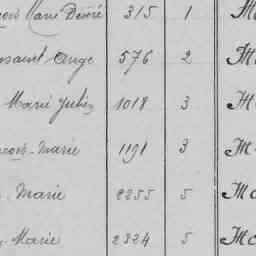 Marie Désiré 315 1 M
Ange 576 2 M
Marie Julie 1018 3 M
-Marie 1191 3 M
Marie 2255 5 M
Marie 2324 5 M